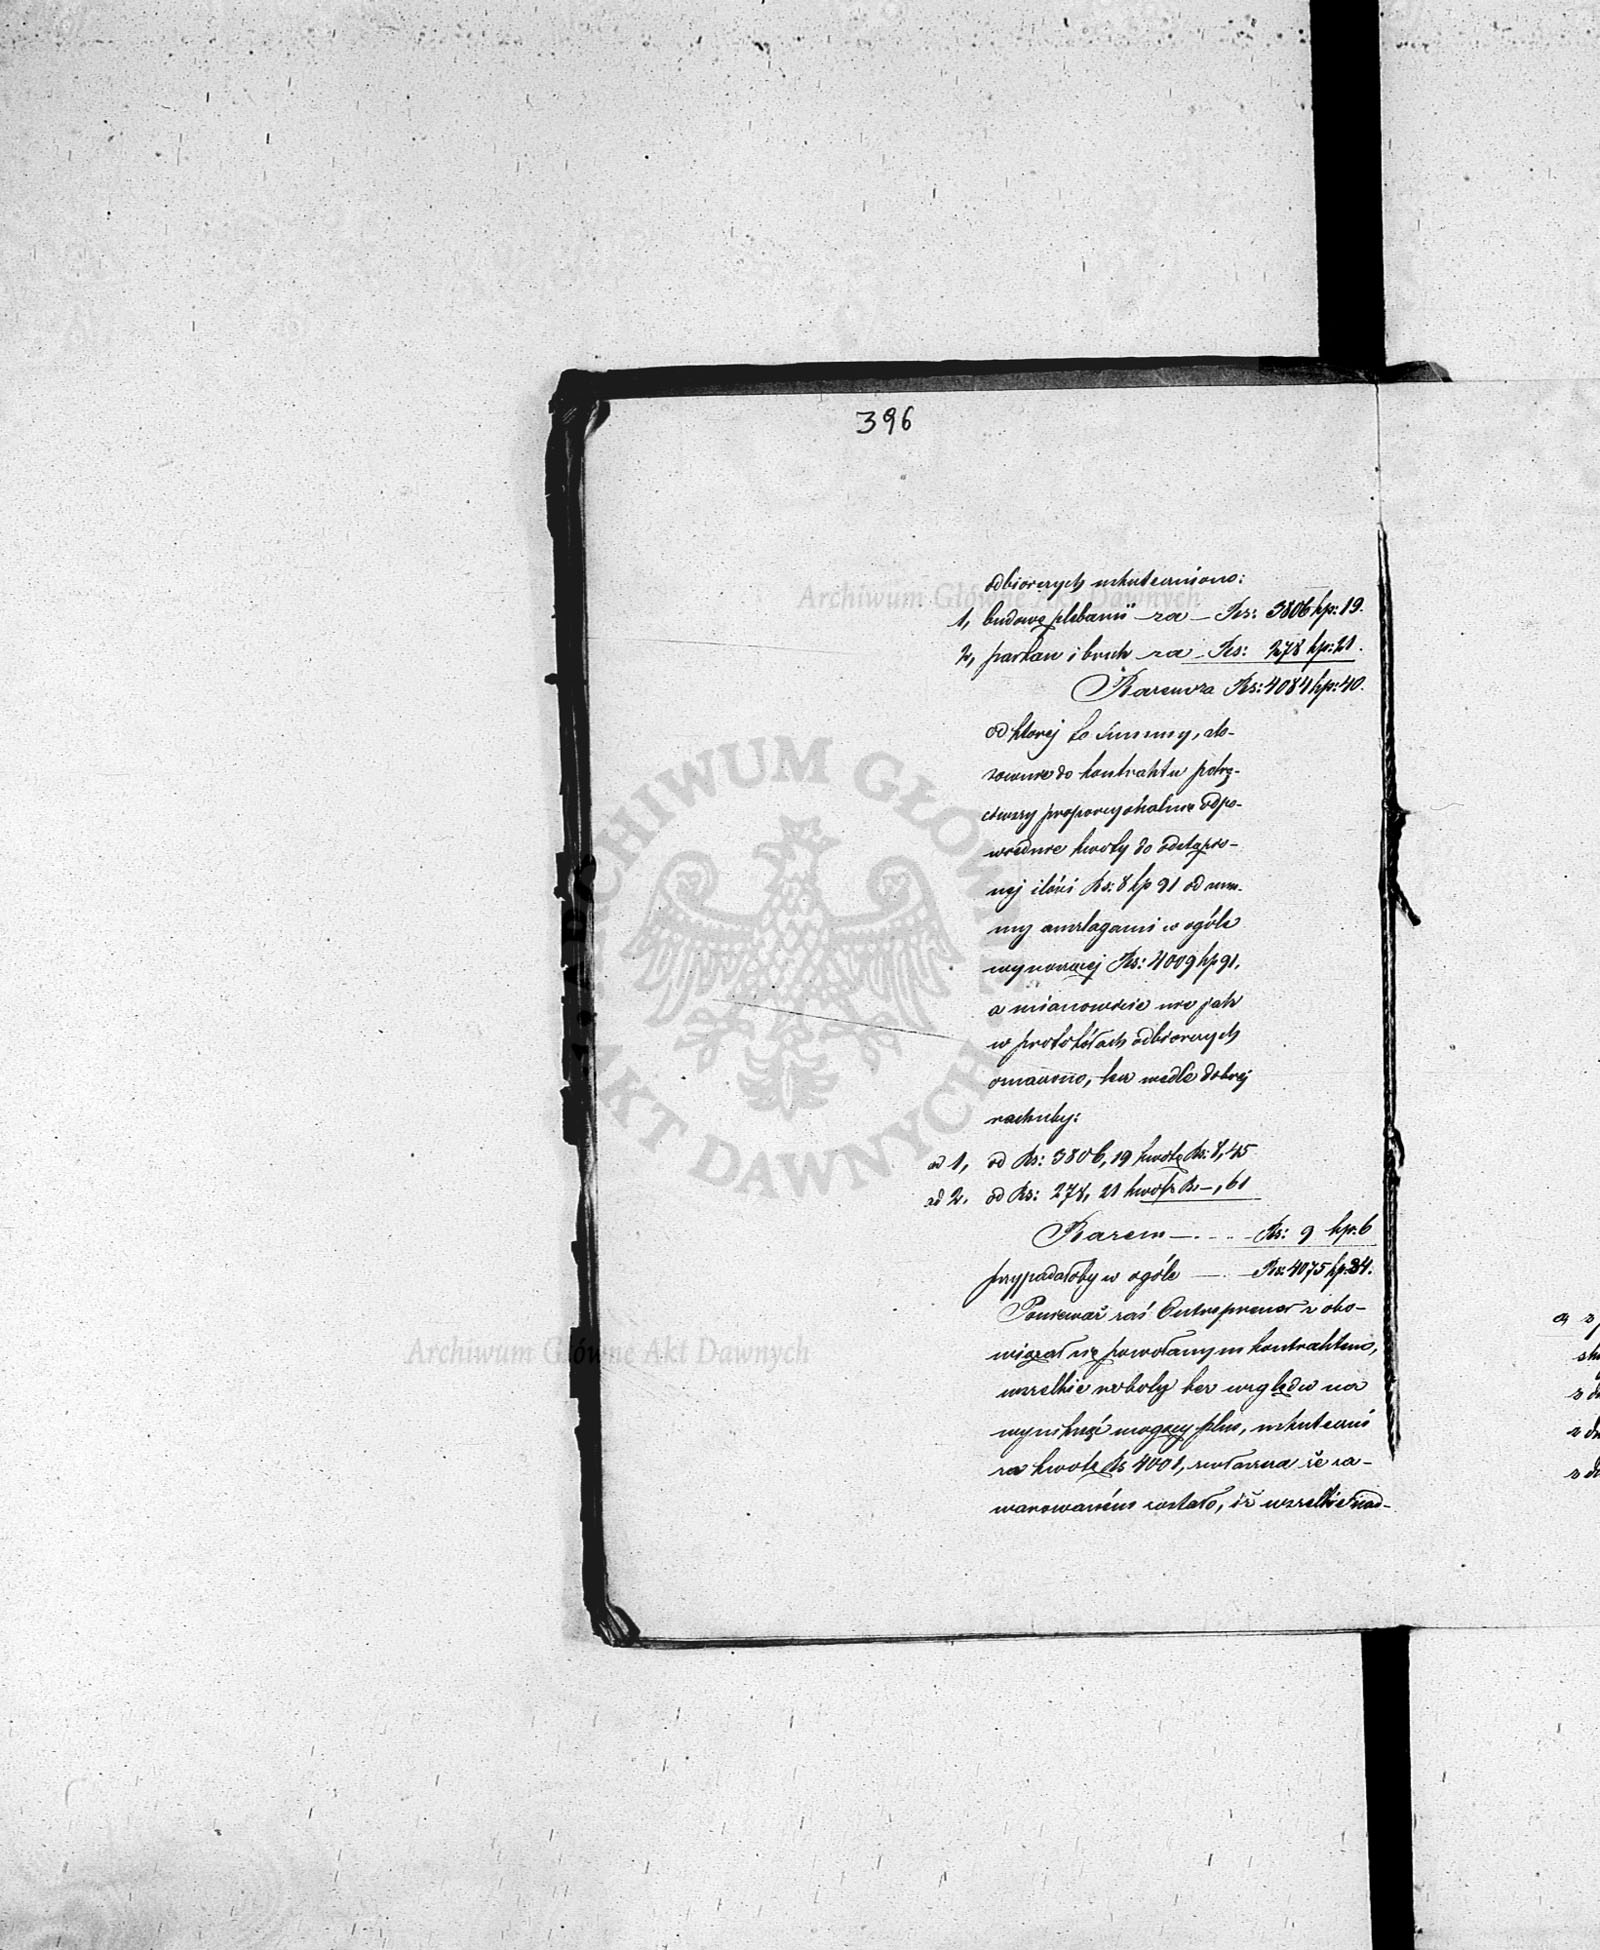 396
odbiorczych uskuteczniono:
1, budowę plebanii za – Rs: 3806 kp: 19.
2, parkan i bruk za – Rs: 278 kp: 21.
Razem za Rs: 4084 kp: 40.
od której to summy, sto-
sownie do kontraktu potrą-
ciwszy proporcyonalnie odpo-
wiednie kwoty do odstąpio-
nej ilości Rs: 8 kp 91 od sum-
my anszlagami w ogóle
wynoszącej Rs: 4009 kp 91,
a mianowicie nie jak
w protokółach odbiorczych
oznaczono, lecz wedle dobrej
rachuby:
ad 1, od Rs: 3806, 19 kwotę Rs: 8, 45
ad 2. od Rs: 278, 21 kwotę Rs –, 61
Razem – . - - - Rs: 9 kp: 6
przypadałoby w ogóle — . — Rs: 4075 kp: 34.
Ponieważ zaś Entreprener zobo-
wiązał się powołanym kontraktem,
wszelkie roboty bez względu na
wyniknąć mogący plus, uskutecznić
za kwotę Rs 4001, zwłaszcza że za-
warowaném zostało, iż wszelkie nad-
a, z
z
z
z
Archiwum Główne Akt Dawnych
Archiwum Główne Akt Dawnych
ARCHIWUM GŁÓWNE AKT DAWNYCH